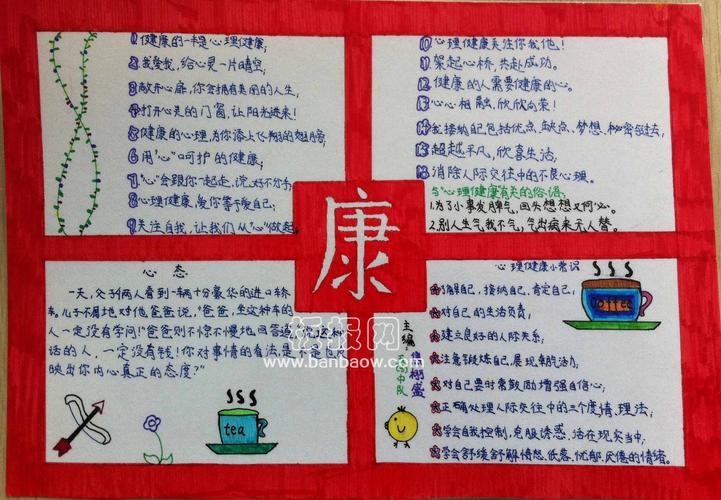 ①健康的一半是心理健康;
②我爱我,给心灵一片晴空;
③敞开心扉,你会拥有美丽的人生;
④打开心灵的门窗,让阳光进来!
⑤健康的心理,为你添上飞翔的翅膀;
⑥用"心"呵护的健康;
⑦"心"会跟你一起走,说好不分手;
⑧心理健康,爱你等于爱自己;
⑨关注自我,让我们从"心"做起
⑩心理健康关注你我他!
⑪架起心桥,共赴成功。
⑫健康的人需要健康的心。
⑬心心相融,欣欣向荣!
⑭我接纳自己包括优点、缺点、梦想、秘密和过去;
⑮超越平凡,欣喜生活;
⑯消除人际交往中的不良心理。
与"心理健康"有关的俗语:
1.为了小事发脾气,回头想想又何必。
2.别人生气我不气,气出病来无人替。
康
心态
一天,父子俩人看到一辆十分豪华的进口轿
车。儿子不屑地对他爸爸说,"爸爸,坐这种车的
人一定没有学问!"爸爸则不惊不慢地回答道:"说这种
话的人,一定没有钱!你对事情的看法,是不是也反
映出你内心真正的态度?"
tea
板报网
www.banbaow.com
主编
中队
心理健康小常识
了解自己,接纳自己,肯定自己,
对自己的生活负责,
建立良好的人际关系,
注意锻炼自己,展现朝气活力;
对自己要时常鼓励增强自信心;
正确处理人际交往中的三个度(情、理、法);
学会自我控制,克服诱惑,活在现实当中;
学会舒缓舒解愤怒、低落、忧郁、厌倦的情绪。
coffee